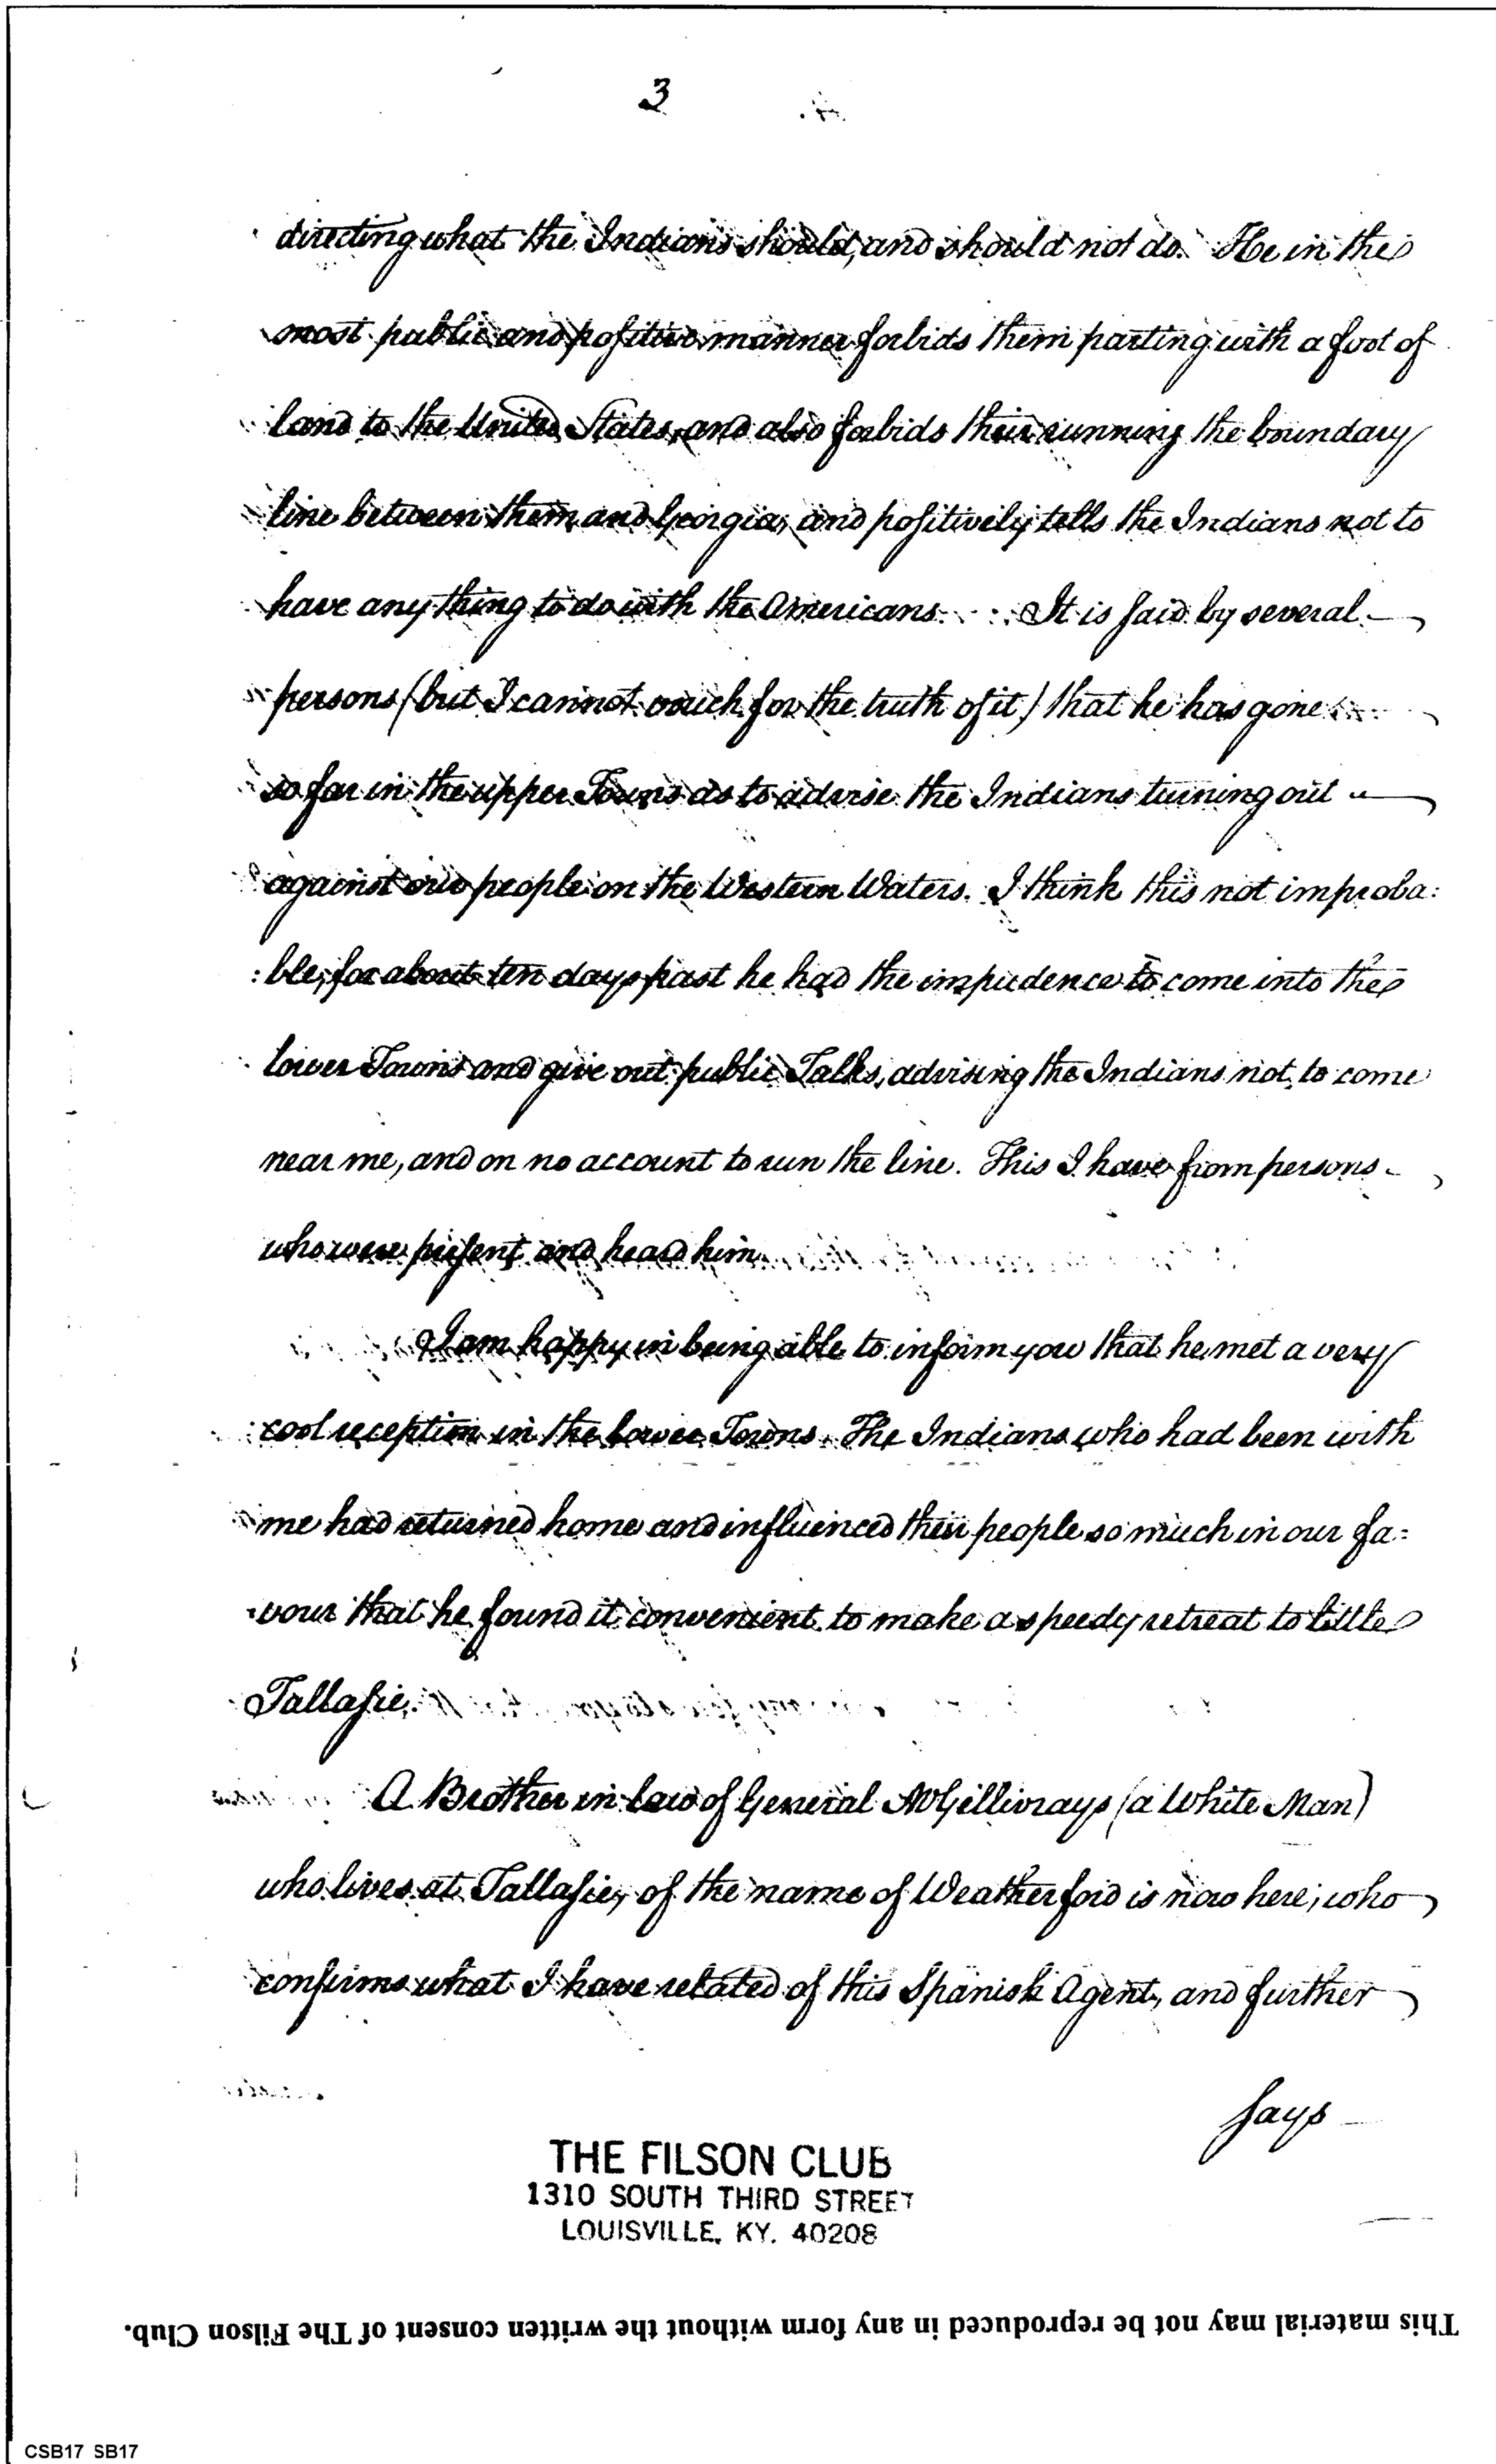 3
directing what the Indians should, and should not do. He in the
most public and positive manner forbids them parting with a foot of
land to the United States, and also forbids their running the boundary
line between them and Georgia, and positively tells the Indians not to
have any thing to do with the Americans. It is said by several
persons (but I cannot vouch for the truth of it) that he has gone
so far in the upper Towns as to advise the Indians turning out
against our people on the Western Waters. I think this not improba:
:ble, for about ten days past he had the impudence to come into the
lower Towns and give out public Talks, advising the Indians not to come
near me, and on no account to run the line. This I have from persons
who were present and heard him.
I am happy in being able to inform you that he met a very
cool reception in the lower Towns. The Indians who had been with
me had returned home and influenced their people so much in our fa:
vour that he found it convenient to make a speedy retreat to little
Tallasie.
A Brother in law of General McGillivrays (a White Man)
who lives at Tallasie, of the name of Weatherford is now here; who
confirms what I have related of this Spanish Agent, and further
says
THE FILSON CLUB
1310 SOUTH THIRD STREET
LOUISVILLE, KY. 40208
This material may not be reproduced in any form without the written consent of The Filson Club.
CSB17 SB17